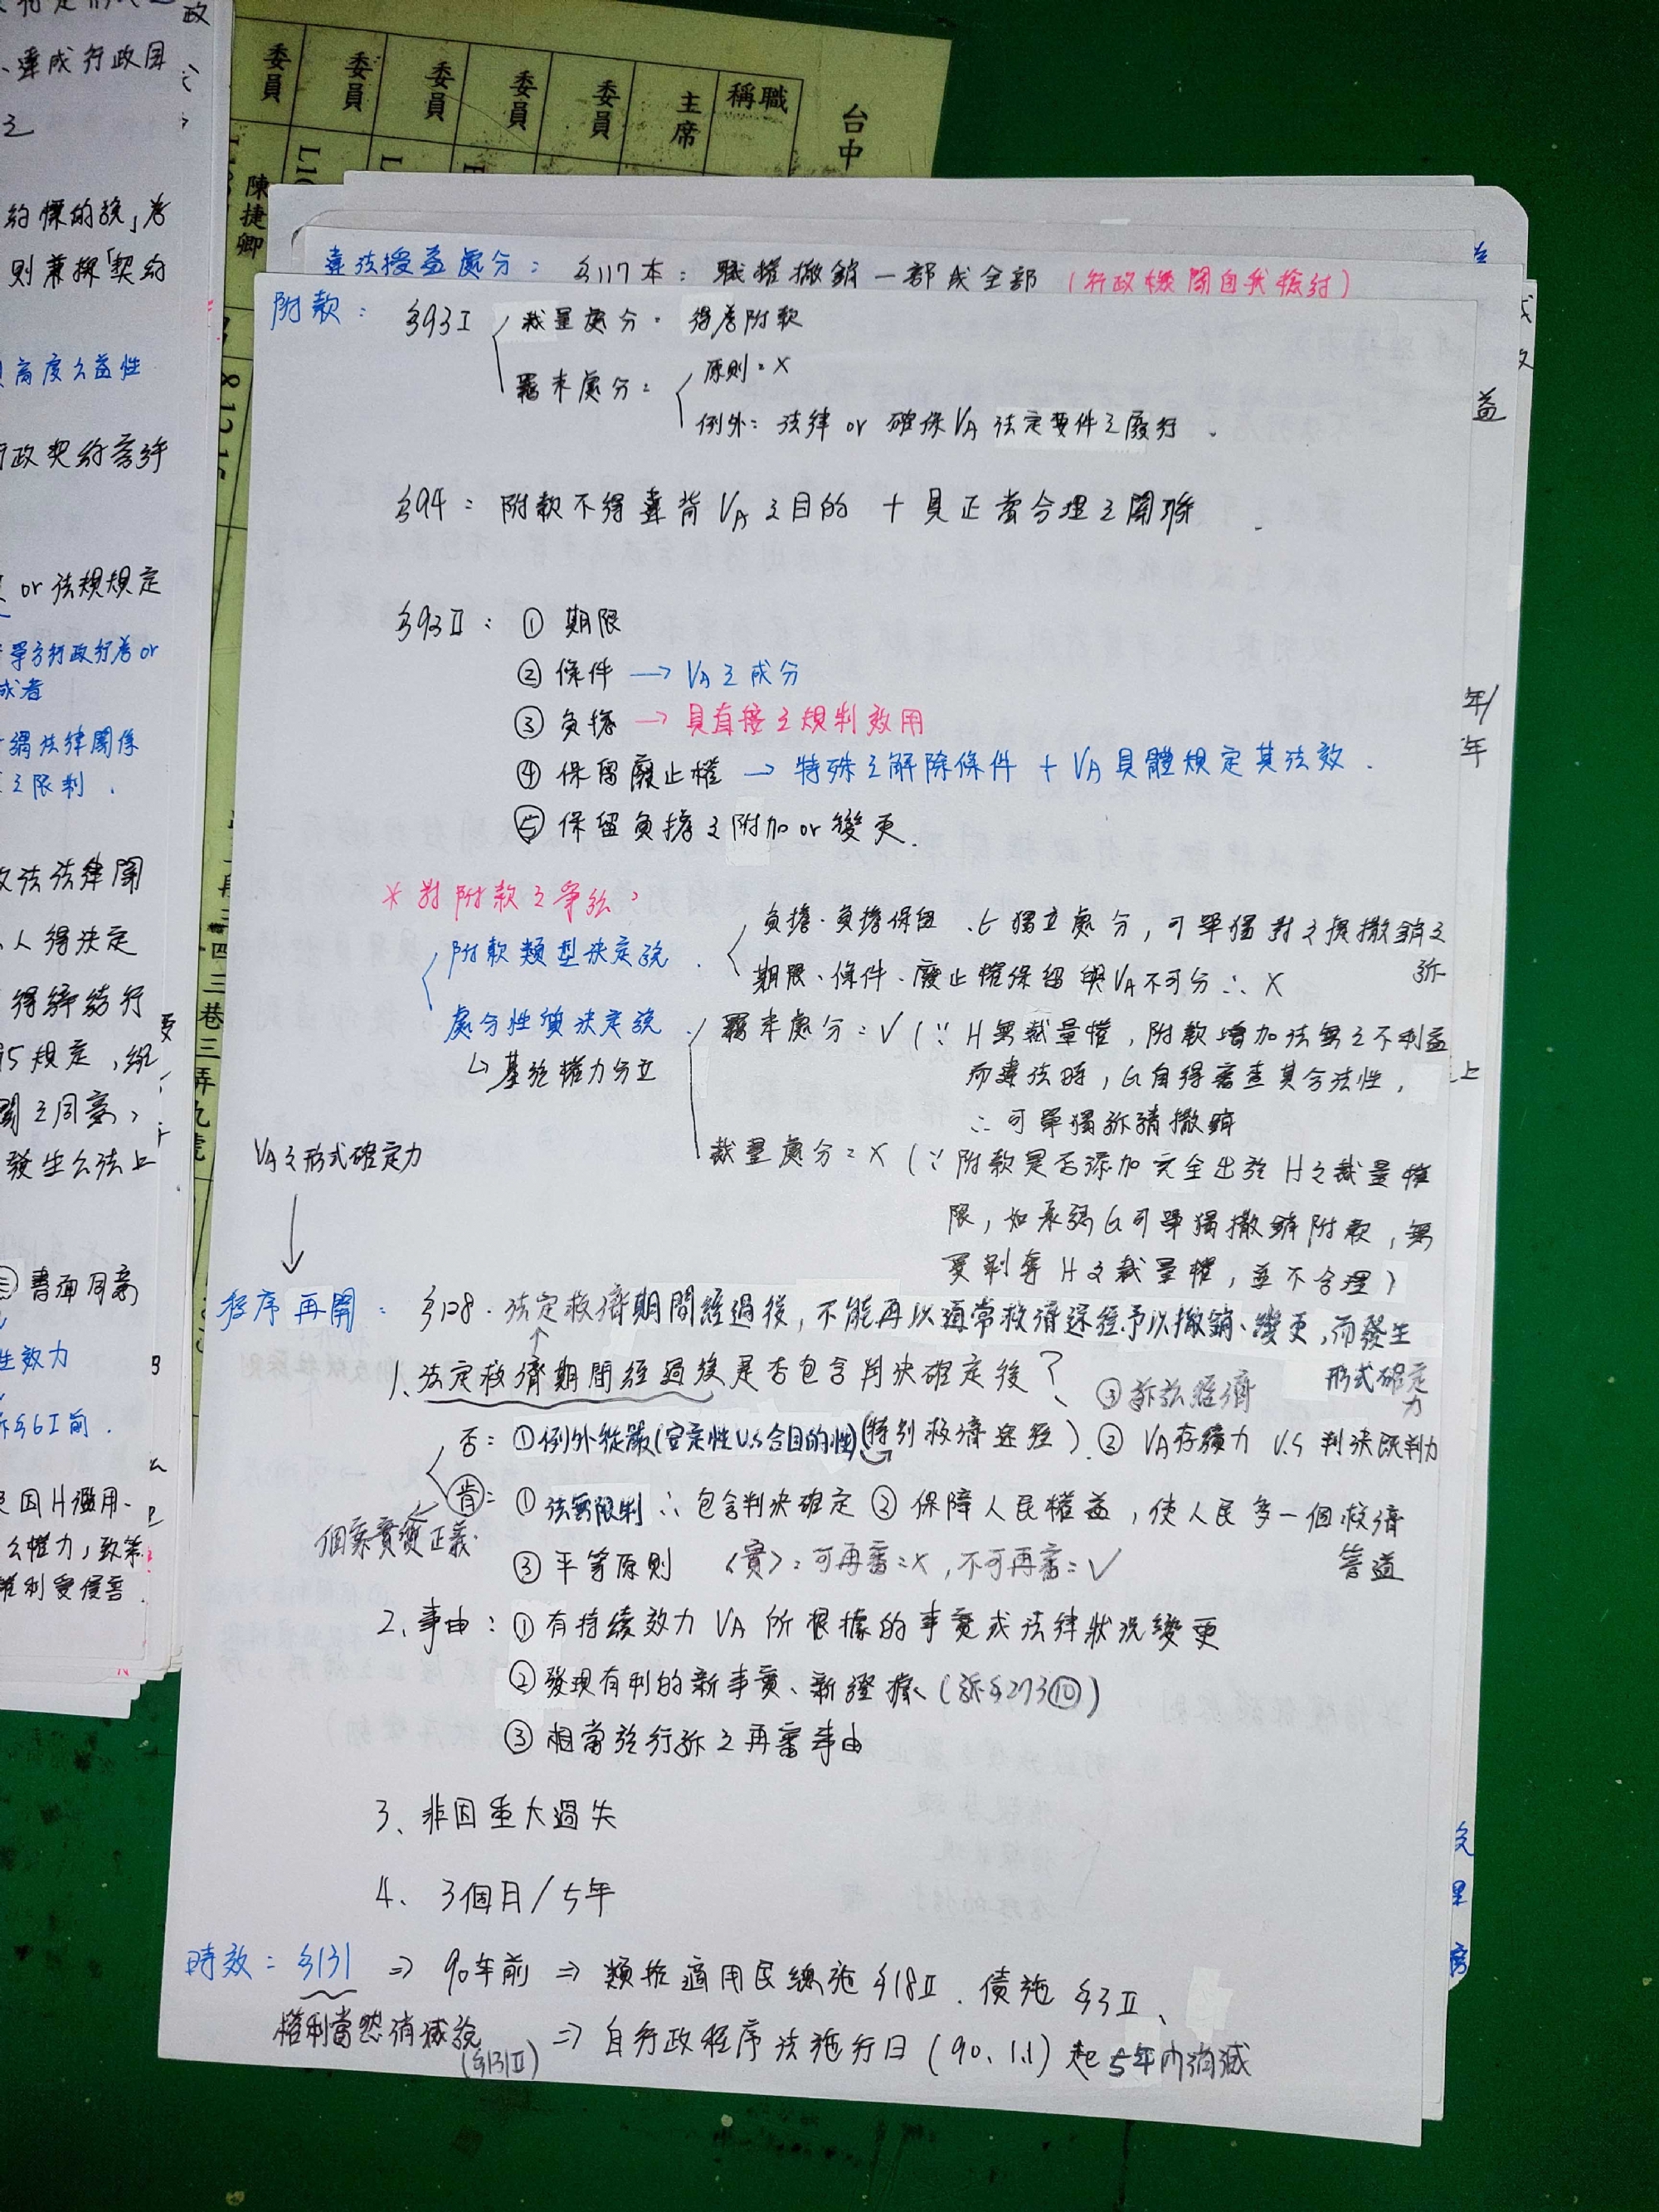 台中
職稱
主席
委員
委員
委員
委員
委員
陳捷卿
四三巷三弄九號
違法授益處分：§117本：職權撤銷一部或全部（行政機關自我檢討）
附款：§93I 裁量處分：得為附款
羈束處分：原則：X
例外：法律 or 確保VA法定要件之履行.
§94：附款不得違背VA之目的 + 具正當合理之關聯
§93Ⅱ：① 期限
② 條件 → VA之成分
③ 負擔 → 具直接之規制效用
④ 保留廢止權 → 特殊之解除條件 + VA具體規定其法效.
⑤ 保留負擔之附加 or 變更.
* 對附款之爭訟：
附款類型決定說. 負擔、負擔保留 ：獨立處分，可單獨對之提撤銷之訴
期限、條件、廢止權保留與VA不可分 ∴ X
處分性質決定說. 羈束處分：V（∵ H無裁量權，附款增加法無之不利益
↳ 基於權力分立 而違法時，G自得審查其合法性，
∴ 可單獨訴請撤銷
裁量處分：X（∵ 附款是否添加完全出於H之裁量權
限，如承認G可單獨撤銷附款，無
異剝奪H之裁量權，並不合理）
VA之形式確定力
↓
程序再開：§128. 法定救濟期間經過後，不能再以通常救濟途徑予以撤銷、變更，而發生
形式確定力
1、法定救濟期間經過後是否包含判決確定後？ ③訴訟經濟
否：①例外從嚴(安定性V.S合目的性)(特別救濟途徑）. ② VA存續力 V.S 判決既判力
肯：① 法無限制 ∴ 包含判決確定 ② 保障人民權益，使人民多一個救濟
管道
個案實質正義.
③ 平等原則 〈實〉：可再審：X，不可再審：V
2、事由：① 有持續效力VA所根據的事實或法律狀況變更
② 發現有利的新事實、新證據（訴§273⑩）
③ 相當於行訴之再審事由
3、非因重大過失
4、3個月/5年
時效：§131 ⇒ 90年前 ⇒ 類推適用民總施§18Ⅱ、債施§3Ⅱ、
權利當然消滅說 (§131Ⅱ) ⇒ 自行政程序法施行日（90、1.1）起5年內消滅
、達成行政目
約標的說」若
則兼採「契約
高度公益性
行政契約容許
or 法規規定
單方行政行為or
或者
法律關係
之限制.
法法律關
人得決定
得締結行
規定，
之同意，
發生公法上
書面同意
生效力
§6I前.
因H濫用
公權力，致
權利受侵害.
益
年/
年
上